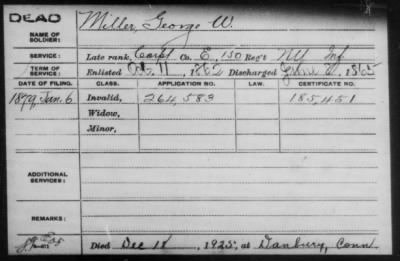 DEAD
Miller, George W.
NAME OF SOLDIER:
SERVICE: Late rank, Corpl Co. E, 150 Reg't NY Inf
TERM OF SERVICE: Enlisted Oct. 11, 1862 Discharged June, 1865
DATE OF FILING. CLASS. APPLICATION NO. LAW. CERTIFICATE NO.
1879, Jan. 6 Invalid, 264,583 185,451
Widow,
Minor,
ADDITIONAL SERVICES:
REMARKS:
Died Dec 18, 1925, at Danbury, Conn